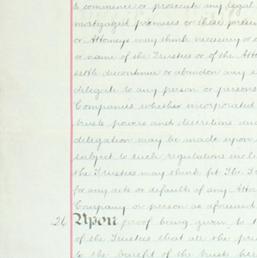 to commence or prosecute any legal
mortgaged premises or these presents
or Attorneys may think necessary or
or name of the Trustees or of the Atto
settle discontinue or abandon any
delegate to any person or persons
Companies whether incorporated
trusts powers and discretions
delegation may be made upon
subject to such regulations
the Trustees may think fit The Tr
for any acts or defaults of any Attor
Company or person as aforesaid
26 Upon proof being given to t
of the Trustees that all the
to the benefit of the trusts